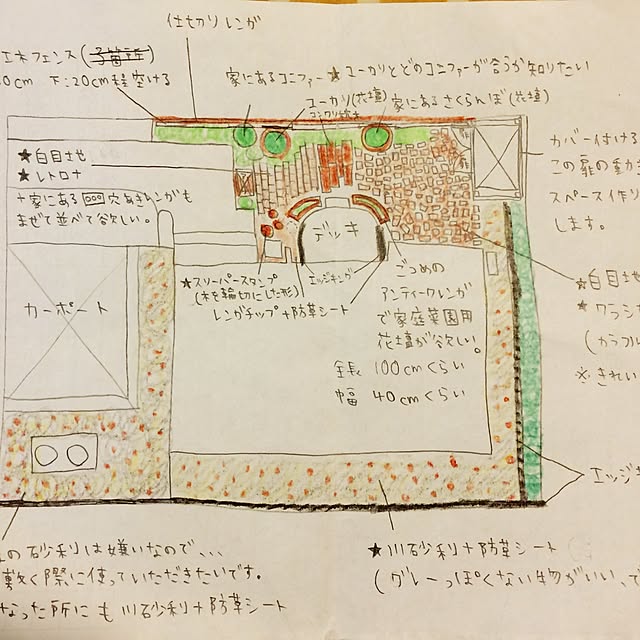 仕切りレンガ
エネフェンス(
0cm 下:20cm程空ける
家にあるコニファー★ユーカリとどのコニファーが合うか知りたい
ユーカリ(花壇)
家にあるさくらんぼ(花壇)
★白目地
★レトロナ
+家にある 穴あきレンガも
まぜて並べて欲しい。
カバー付ける
この扉の動か
スペース作り
します。
デッキ
カーポート
★スリーパースタンプ
(木を輪切りにした形)
レンガチップ+防草シート
エッジキング
こつめの
アンティークレンガ
で家庭菜園用
花壇が欲しい。
全長 100cmくらい
幅 40cmくらい
★白目地
★クラシ
(カラフル
※きれい
エッジキ
の砂利は嫌いなので、、、
敷く際に使っていただきたいです。
なった所にも川砂利+防草シート
★川砂利+防草シート
(グレーっぽくない物がいい、で